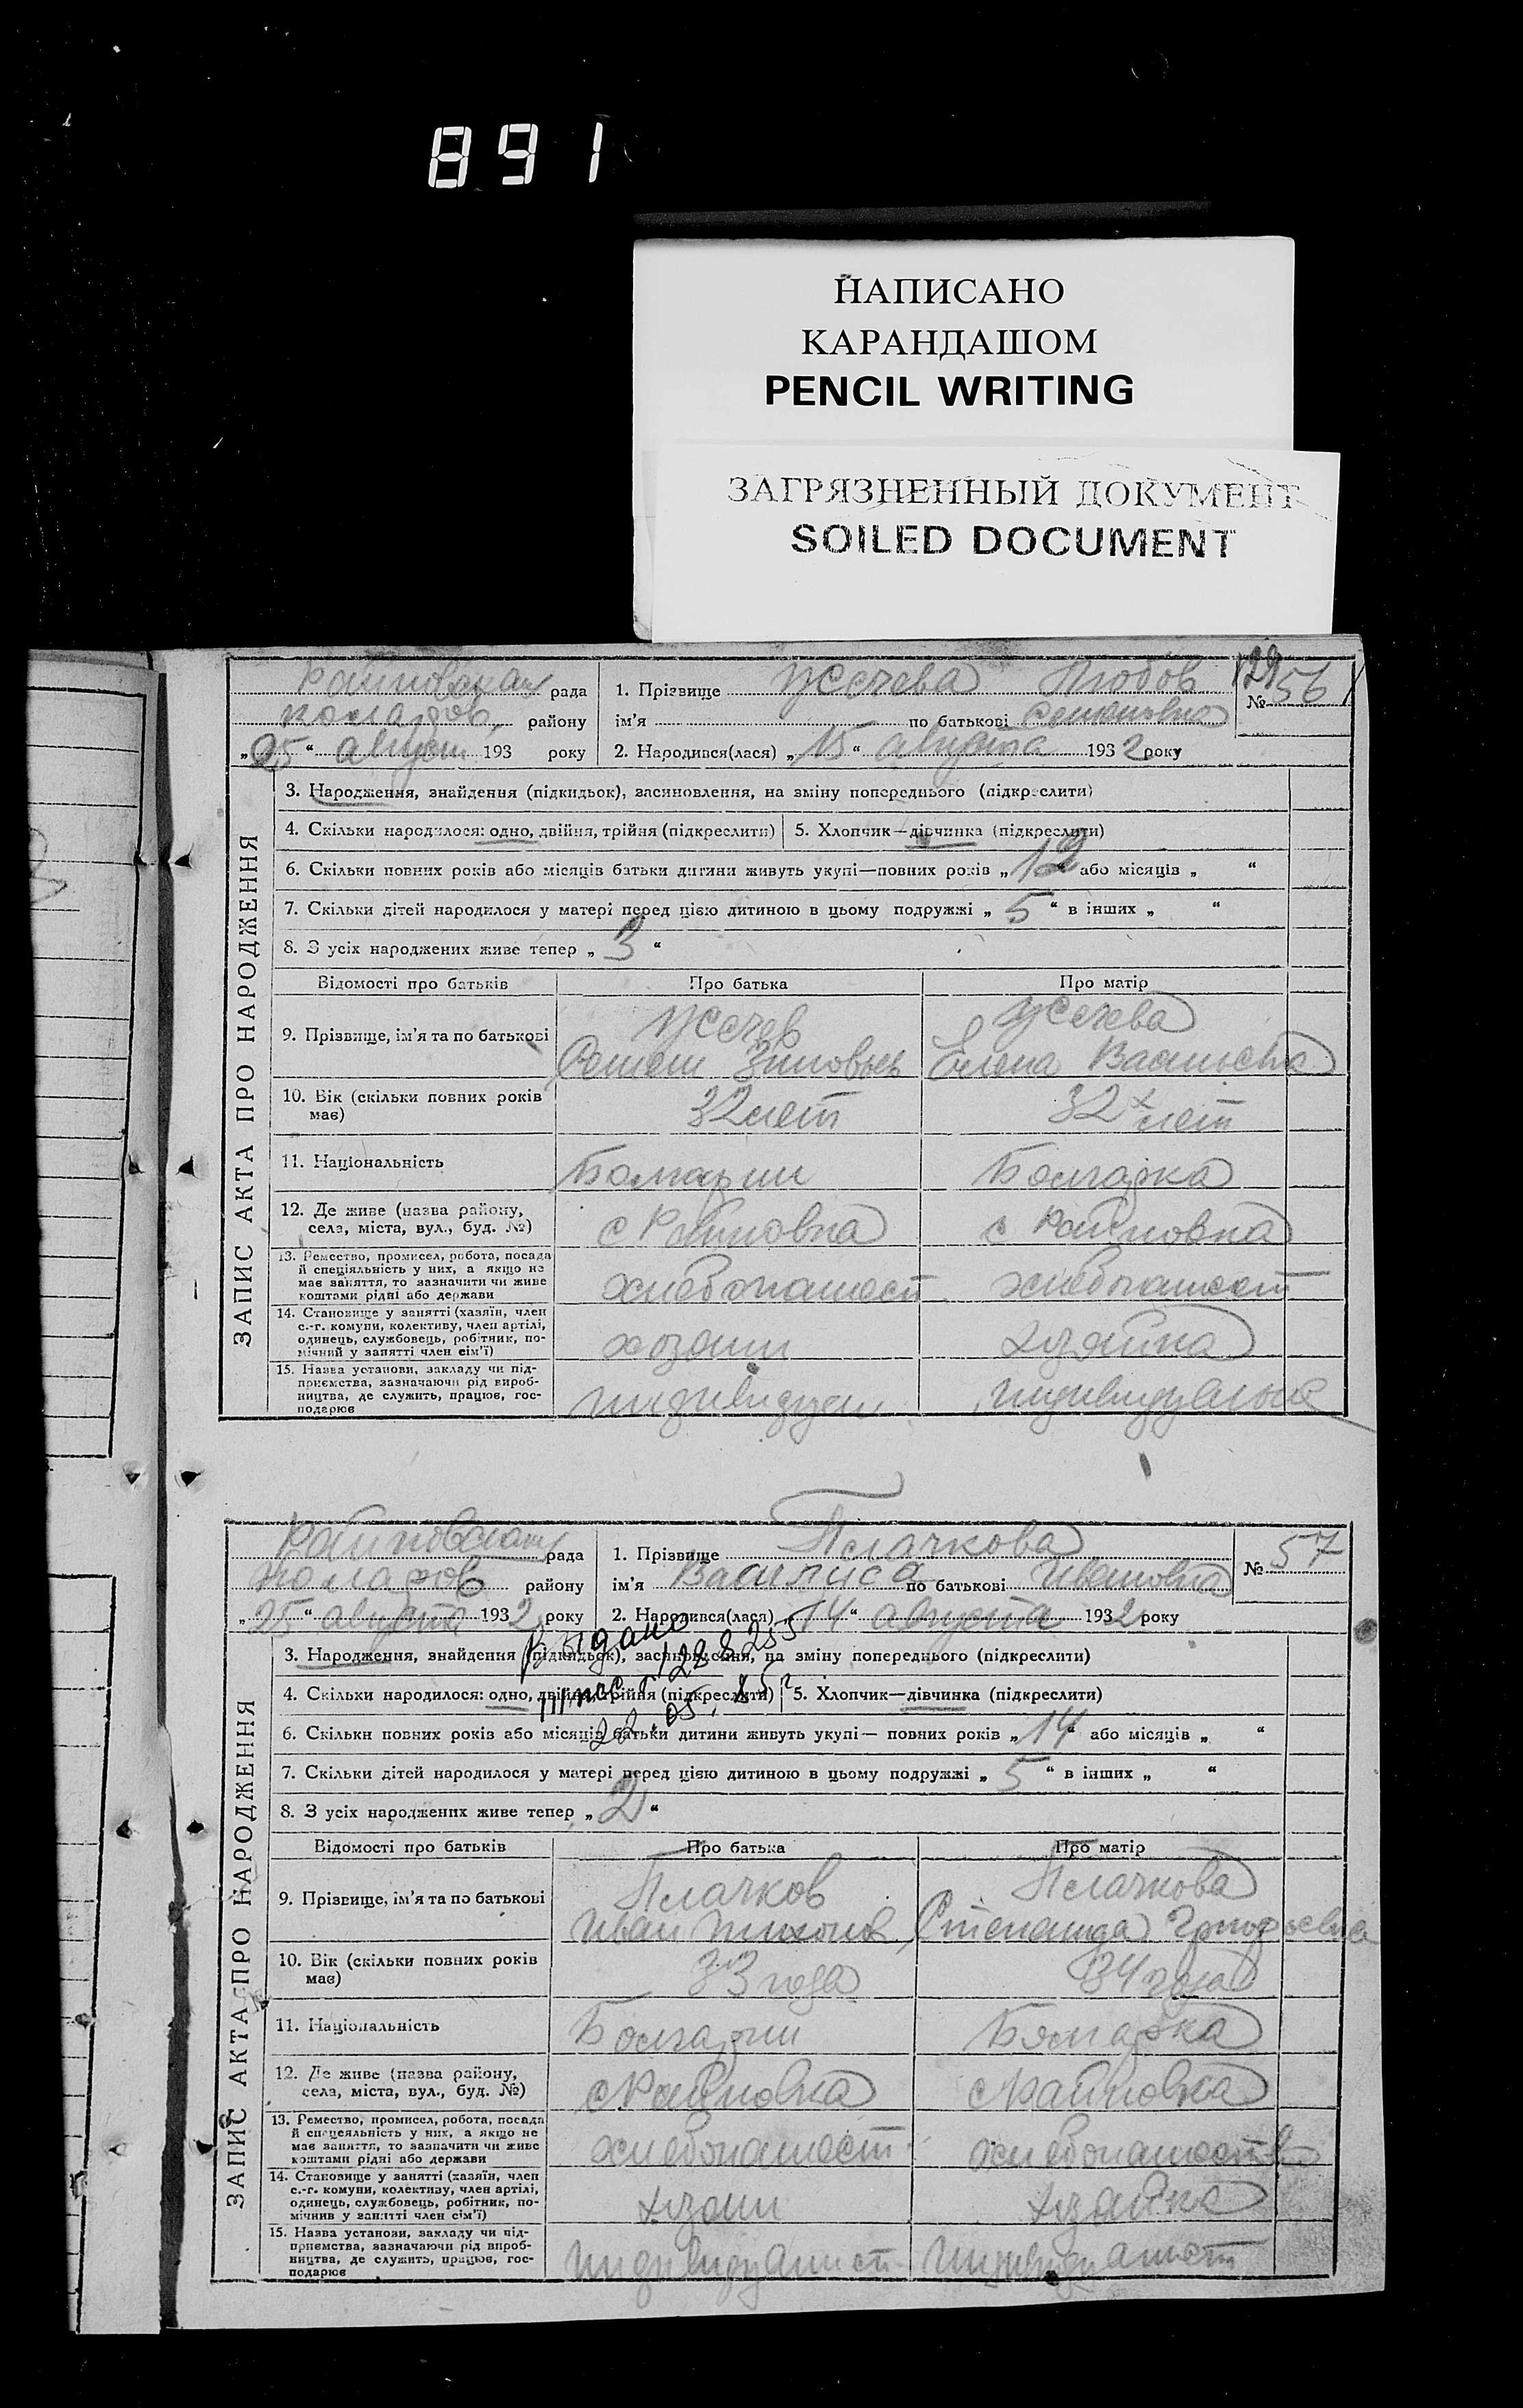 891
НАПИСАНО
КАРАНДАШОМ
PENCIL WRITING
ЗАГРЯЗНЕННЫЙ ДОКУМЕНТ
SOILED DOCUMENT
ЗАПИС АКТА ПРО НАРОДЖЕННЯ
рада
району
„25“ август 193 року
1. Прізвище Любов
ім'я по батькові
2. Народився(лася) „15“ августа 1932 року
№ 56
3. Народження, знайдення (підкидьок), засиновлення, на зміну попереднього (підкреслити)
4. Скільки народилося: одно, двійня, трійня (підкреслити)
5. Хлопчик—дівчинка (підкреслити)
6. Скільки повних років або місяців батьки дитини живуть укупі—повних років „12“ або місяців „ “
7. Скільки дітей народилося у матері перед цією дитиною в цьому подружжі „5“ в інших „ “
8. З усіх народжених живе тепер „3“
Відомості про батьків Про батька Про матір
9. Прізвище, ім'я та по батькові
Елена
10. Вік (скільки повних років
має)
32 лет 32 лет
11. Національність
Болгарин Болгарка
12. Де живе (назва району,
села, міста, вул., буд. №)
с Райновка с Райновка
13. Ремество, промисел, робота, посада
й спеціяльність у них, а якщо не
має заняття, то зазначити чи живе
коштами рідні або держави
хлебопашест хлебопашест
14. Становище у занятті (хазяїн, член
с.-г. комуни, колективу, член артілі,
одинець, службовець, робітник, по-
мічний у занятті член сім'ї)
хозяин хозяйка
15. Назва установи, закладу чи під-
приємства, зазначаючи рід вироб-
ництва, де служить, працює, гос-
подарює
ЗАПИС АКТА ПРО НАРОДЖЕННЯ
рада
Коларов району
„25“ августа 1932 року
1. Прізвище Плачкова
ім'я Василиса по батькові Ивановна
2. Народився(лася) „14“ августа 1932 року
№ 57
Видано
3. Народження, знайдення (підкидьок), засиновлення, на зміну попереднього (підкреслити)
4. Скільки народилося: одно, двійня, трійня (підкреслити)
5. Хлопчик—дівчинка (підкреслити)
6. Скільки повних років або місяців батьки дитини живуть укупі— повних років „14“ або місяців „ “
7. Скільки дітей народилося у матері перед цією дитиною в цьому подружжі „5“ в інших „ “
8. З усіх народжених живе тепер „2“
Відомості про батьків Про батька Про матір
9. Прізвище, ім'я та по батькові
Плачков Плачкова
Иван
10. Вік (скільки повних років
має)
33 года 34 года
11. Національність
Болгарин Болгарка
12. Де живе (назва району,
села, міста, вул., буд. №)
с Райновка с Райновка
13. Ремество, промисел, робота, посада
й спецеяльність у них, а якщо не
має заняття, то зазначити чи живе
коштами рідні або держави
хлебопашест хлебопашеств
14. Становище у занятті (хазяїн, член
с.-г. комуни, колективу, член артілі,
одинець, службовець, робітник, по-
мічнив у занятті член сім'ї)
хозяин хозяйка
15. Назва установи, закладу чи під-
приємства, зазначаючи рід вироб-
ництва, де служить, працює, гос-
подарює